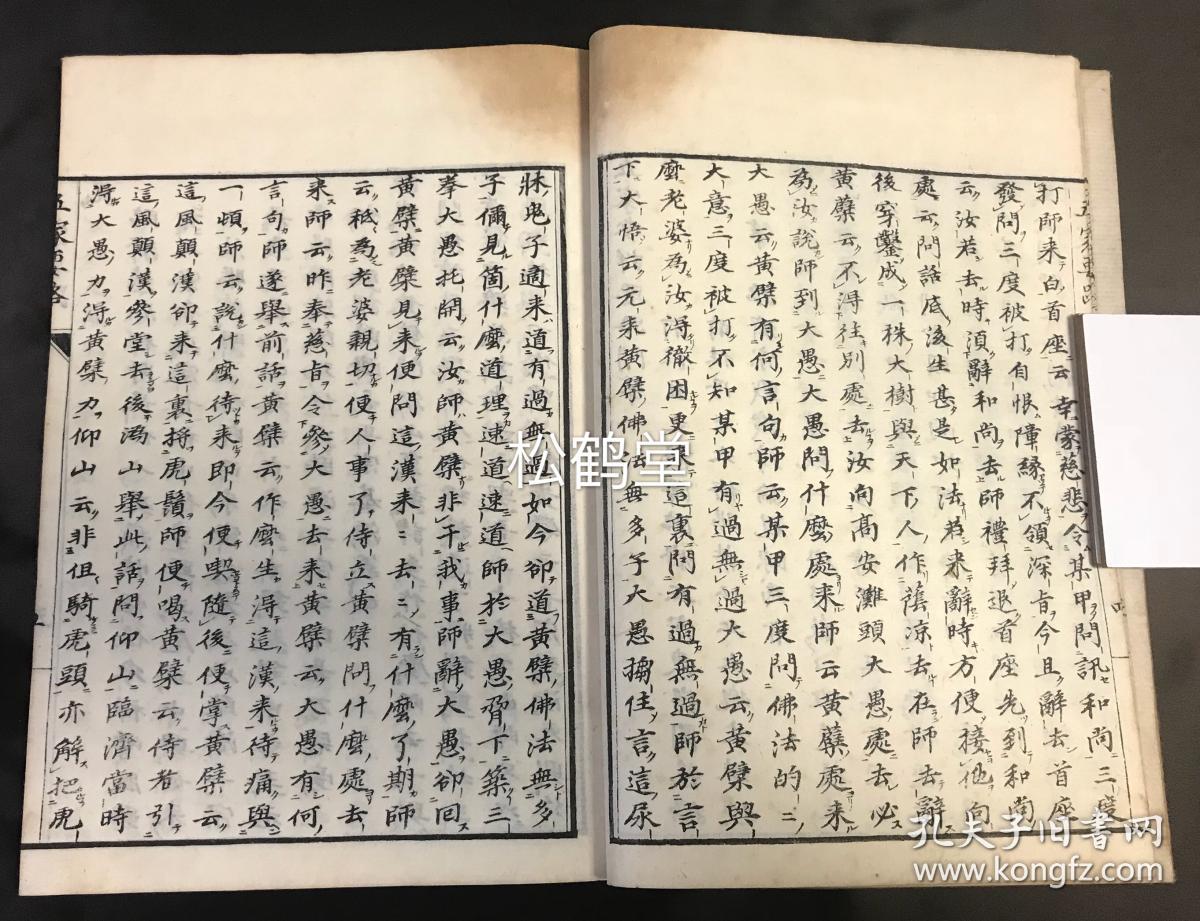 打師来白首座云幸蒙慈悲令某甲問訊和尚三度
發問三度被打自恨障縁不領深旨今且辭去首座
云汝若去時須辭和尚去師禮拜退首座先到和尚
處云問話底後生甚是如法若来辭時方便接他向
後穿鑿成一株大樹與天下人作蔭凉去在師去辭
黄蘗云不得往別處去汝向高安灘頭大愚處去必
為汝說師到大愚大愚問什麼處来師云黄蘗處来
大愚云黄檗有何言句師云某甲三度問佛法的ニ
大意三度被打不知某甲有過無過大愚云黄檗與
麼老婆為汝得徹困更来這裏問有過無過師於言
下大悟云元来黄檗佛法無多子大愚搊住言這尿
牀鬼子適来道有過無過如今卻道黄檗佛法無多
子儞見箇什麼道理速道速道師於大愚脅下築三
拳大愚托開云汝師黄檗非干我事師辭大愚卻回
黄檗黄檗見来便問這漢来ニ去ニ有什麼了期師
云秪為老婆親切便人事了侍立黄檗問什麼處去
来師云昨奉慈旨令參大愚去来黄檗云大愚有何
言句師遂舉前話黄檗云作麼生得這漢来待痛與
一頓師云說什麼待来即今便喫隨後便掌黄檗云
這風顛漢卻来這裏捋虎鬚師便喝黄檗云侍者引
這風顛漢參堂去後溈山舉此話問仰山臨濟當時
得大愚力得黄檗力仰山云非但騎虎頭亦解把虎
五家要略
松鹤堂
孔夫子旧书网
www.kongfz.com